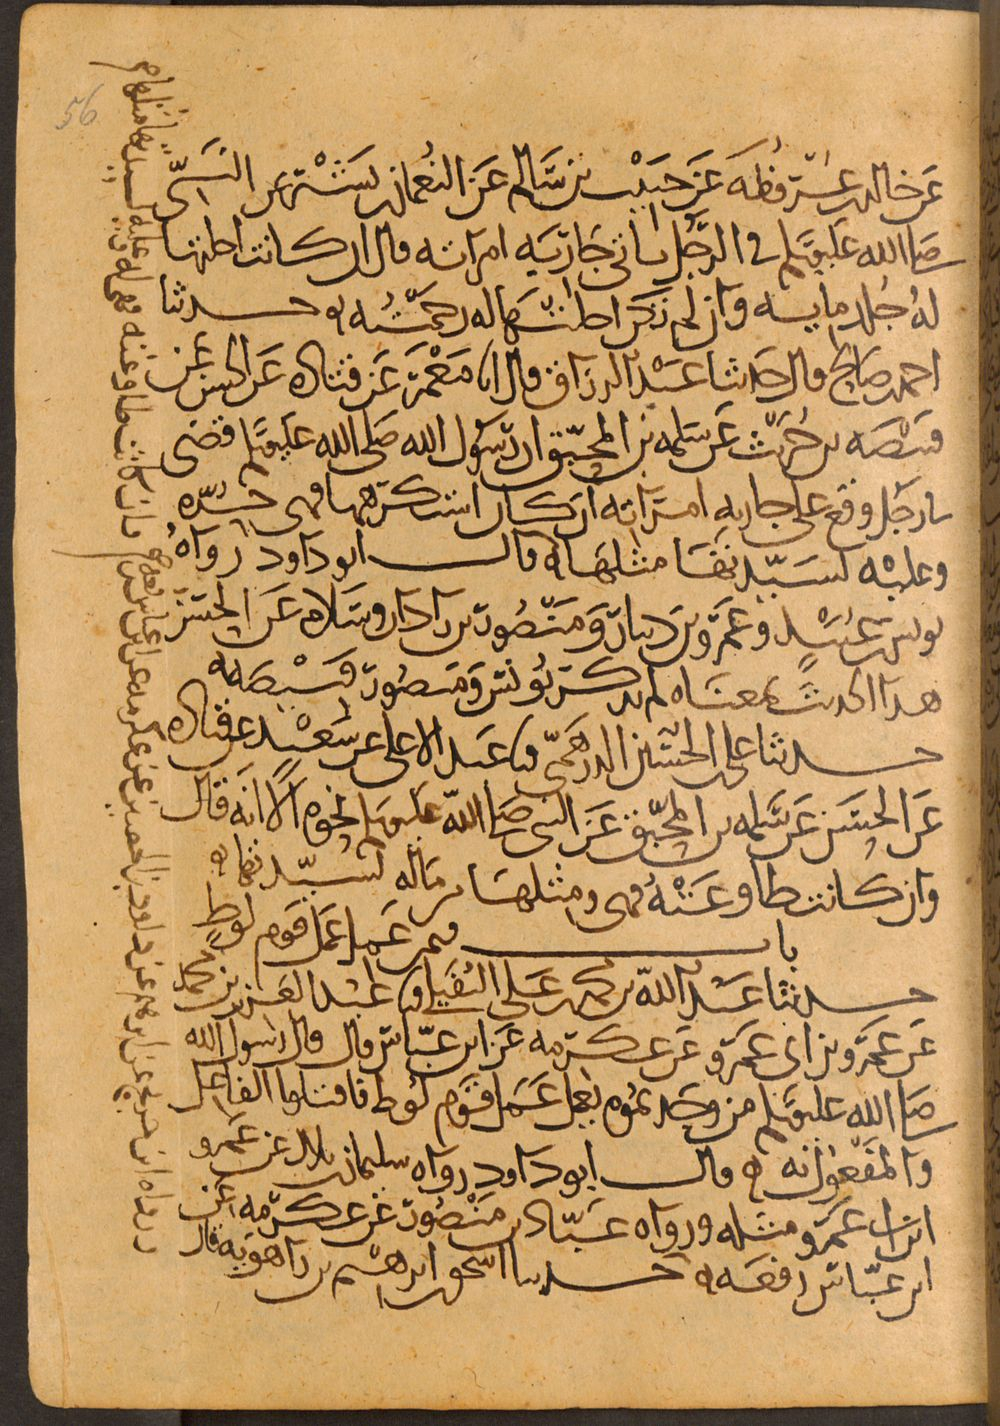 56
عن خالد بن عرفطة عن حبيب بن سالم عن النعمان بن بشير عن النبي
صلى الله عليه وسلم في الرجل يأتي جارية امراته قال ان كانت احلتها
له جلد مايه وان لم تكن احلتها له رجمته ه حدثنا
احمد بن صالح قال حدثنا عبد الرزاق قال انا معمر عن قتادة عن الحسن عن
قبيصة بن حريث عن سلمة بن المحبق ان رسول الله صلى الله عليه وسلم قضى
في رجل وقع على جارية امراته ان كان استكرهها فهي حرة
وعليه لسيدتها مثلها ه قال ابو داود رواه
يونس بن عبيد وعمرو بن دينار ومنصور بن زاذان وسلام عن الحسن
هذا الحديث بمعناه لم يذكر يونس ومنصور قبيصة ه
حدثنا علي بن الحسين الدرهمي نا عبد الاعلى عن سعيد عن قتادة
عن الحسن عن سلمة بن المحبق عن النبي صلى الله عليه وسلم نحوه الا انه قال
وان كانت طاوعته فهي ومثلها من ماله لسيدتها ه
باب فيمن عمل عمل قوم لوط
حدثنا عبد الله بن محمد بن علي النفيلي نا عبد العزيز بن محمد
عن عمرو بن ابي عمرو عن عكرمة عن ابن عباس قال قال رسول الله
صلى الله عليه وسلم من وجدتموه يعمل عمل قوم لوط فاقتلوا الفاعل
والمفعول به ه قال ابو داود رواه سليمان بن بلال عن عمرو
ابن ابي عمرو مثله ورواه عباد بن منصور عن عكرمة عن
ابن عباس رفعه ه حدثنا اسحق بن ابرهيم بن راهويه قال